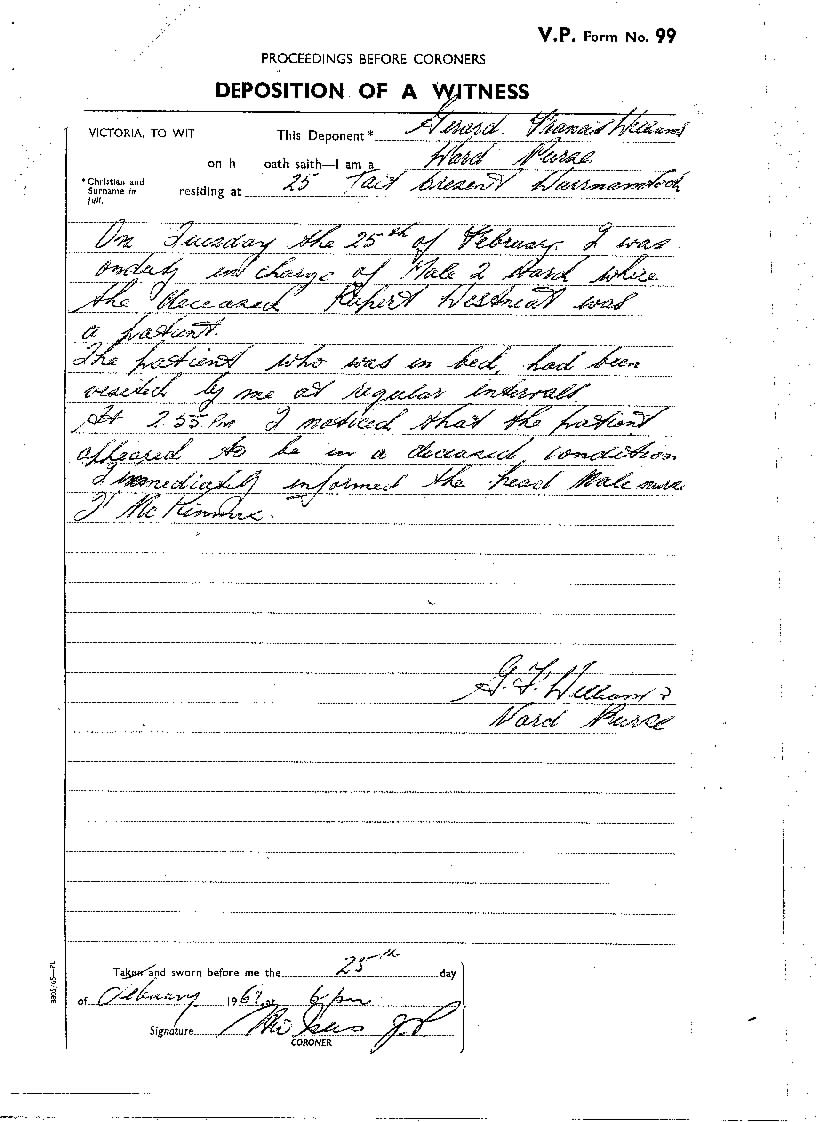 V.P. Form No. 99
PROCEEDINGS BEFORE CORONERS
DEPOSITION OF A WITNESS
VICTORIA, TO WIT This Deponent* Gerard Francis Williams
on h oath saith—I am a Ward Nurse
*Christian and Surname in full.
residing at 25 Tait cresent Warrnambool
On Tuesday the 25th of February I was
onduty in charge of Male 2 Ward where
the deceased Rupert Westneat was
a patient.
The patient who was in bed, had been
visited by me at regular intervals
At 2.55 Pm I noticed that the patient
appeared to be in a deceased condition
I immediately informed the head Male nurse
Mc Kinnie.
G. F. Williams
Ward Nurse
Taken and sworn before me the 25th day
of February 196 at 6 pm
Signature
CORONER